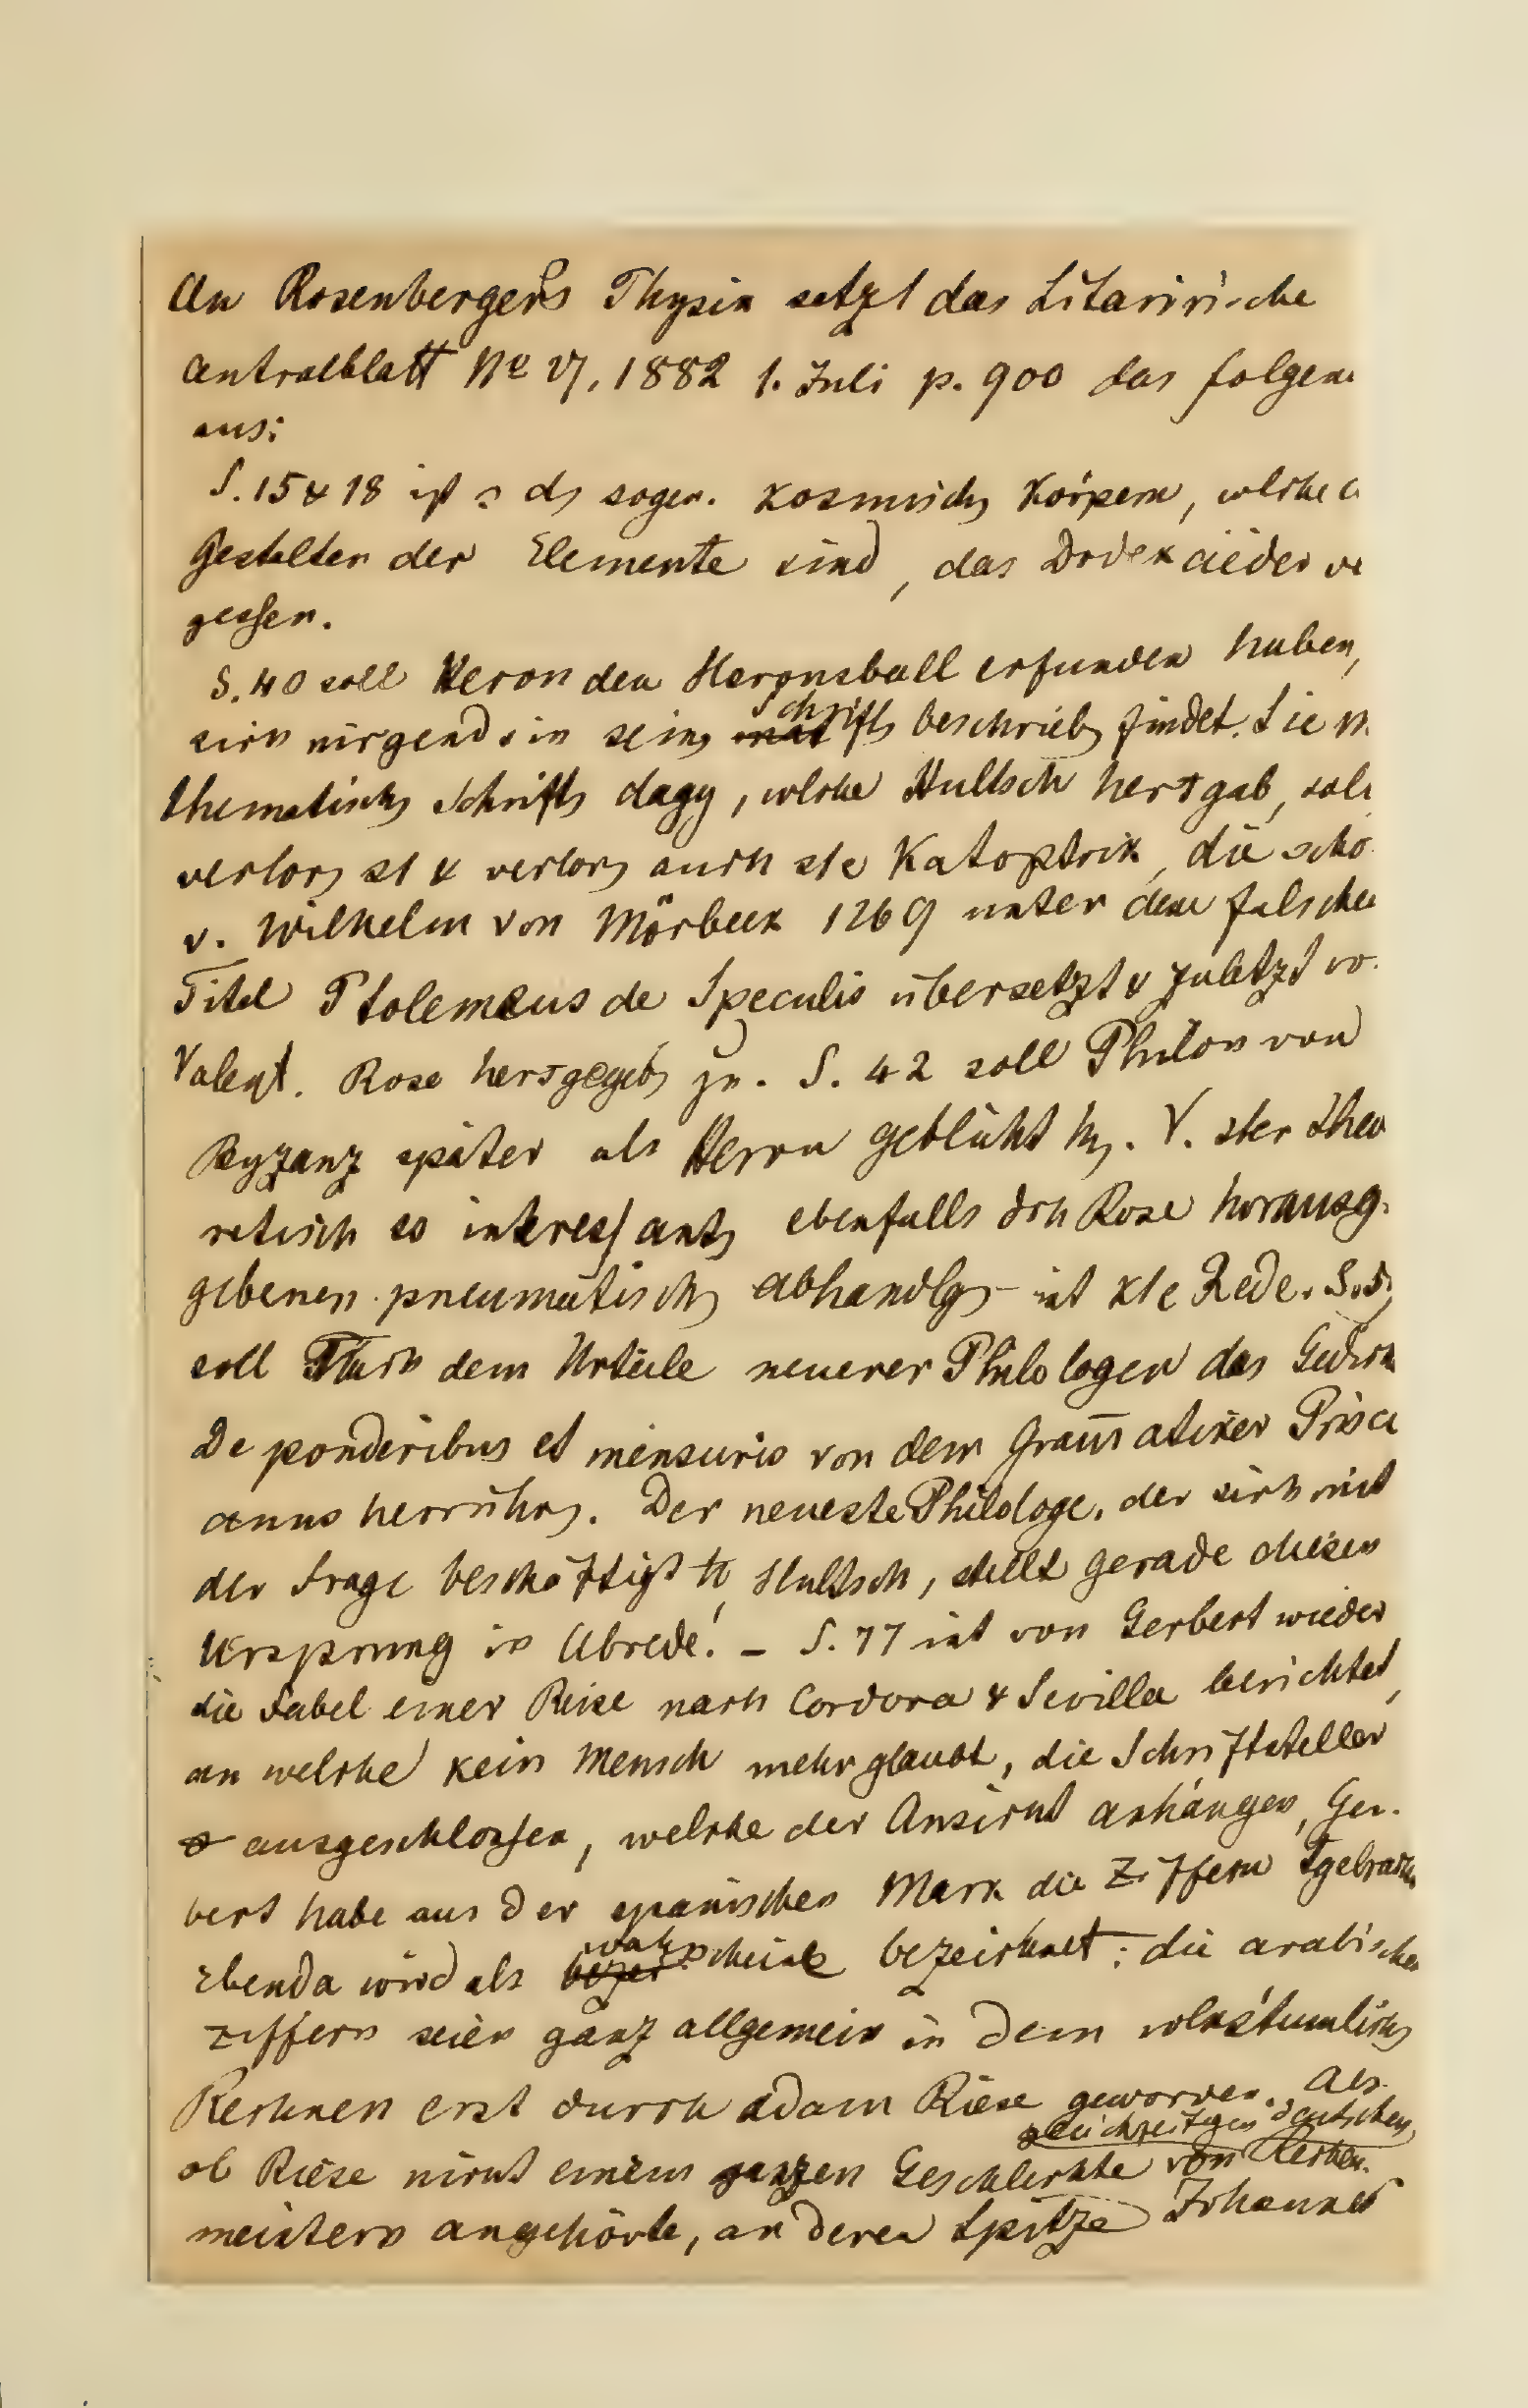 An Rosenbergers Physik setzt das Litarirische
Centralblatt No 27, 1882 1. Juli p. 900 das folgen
aus:
S. 15 & 18 ist ds sogen. kosmisch Körpern, welche
Gestalten der Elemente sind, das Dodekaieder ve
gessen.
S. 40 soll Heron den Heronsball erfunden haben,
sich nirgends in sein Schrift beschrieb findet. Die m
thematisch Schrift dag, welche Hultsch hersgab, soll
verlor st & verlor auch ste Katoptrik, die scho
v. Wilhelm von Mörbeek 1269 unter dem falschen
Titel Ptolemæus de Speculis übersetzt & zuletzt vo
Valent. Rose hersgegeb. S. 42 soll Philon von
Byzanz später als Heron geblüht h. V. sler theo
retisch so interessant ebenfalls dch Rose herausg
gebenen pneumatisch Abhandlg ist kle Rede. S. 5
soll nach dem Urteile neuerer Philologen das Gedich
De ponderibus et mensuris von dem Gram̄atiker Prisci
anus herrühr. Der neueste Philologe, der sich mit
der Frage beschäftigt h, Hultsch, stellt gerade diesen
Ursprung in Abrede! – S. 77 ist von Gerbert wieder
die Fabel einer Reise nach Cordova & Sevilla berichtet,
an welche kein Mensch mehr glaubt, die Schriftsteller
ausgeschlossen, welche der Ansicht anhängen, Ger-
bert habe aus der spanischen Mark die Ziffern gebrach
Ebenda wird als wahrscheinl bezeichnet: die arabischen
Ziffern seien ganz allgemein in dem volkstümlich
Rechnen erst durch Adam Riese geworden. Als
gleichzeitigen deutschen
ob Riese nicht einem ganzen Geschlechte von Rechen-
meistern angehörte, an deren Spitze Johannes